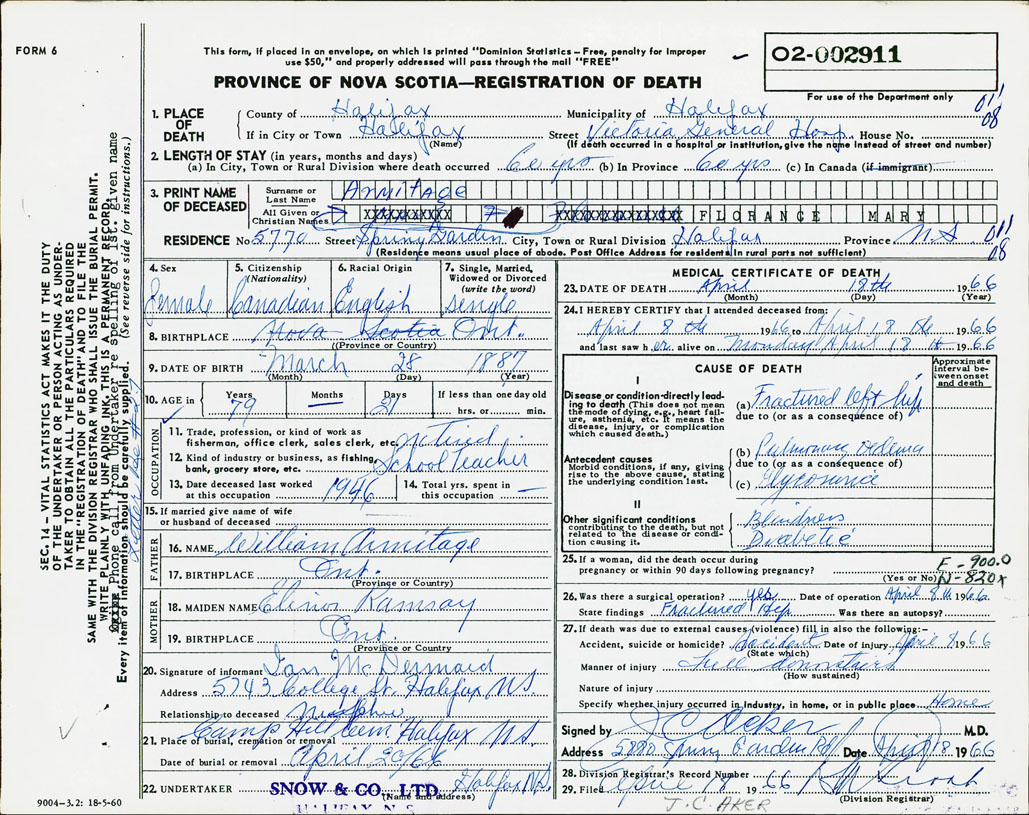 FORM 6
This form, if placed in an envelope, on which is printed "Dominion Statistics – Free, penalty for improper
use $50," and properly addressed will pass through the mail "FREE"
02-002911
PROVINCE OF NOVA SCOTIA—REGISTRATION OF DEATH
For use of the Department only
011
08
1. PLACE OF DEATH
County of Halifax Municipality of Halifax
If in City or Town Halifax Street Victoria General Hosp. House No.
(Name) (If death occurred in a hospital or institution, give the name instead of street and number)
2. LENGTH OF STAY (in years, months and days)
(a) In City, Town or Rural Division where death occurred 60 yrs (b) In Province 60 yrs (c) In Canada (if immigrant)
3. PRINT NAME OF DECEASED
Surname or Last Name Armitage
All Given or Christian Names XXXXXXXXXX XXXXXXXXXXXXXX FLORANCE MARY
RESIDENCE No 5770 Street Spring Garden City, Town or Rural Division Halifax Province N.S 011
08
(Residence means usual place of abode. Post Office Address for residents in rural parts not sufficient)
4. Sex
female
5. Citizenship
(Nationality)
Canadian
6. Racial Origin
English
7. Single, Married, Widowed or Divorced
(write the word)
single
8. BIRTHPLACE Nova Scotia Ont.
(Province or Country)
9. DATE OF BIRTH March 28 1887
(Month) (Day) (Year)
10. AGE in
Years Months Days If less than one day old
79 — 21 hrs. or min.
OCCUPATION
11. Trade, profession, or kind of work as
fisherman, office clerk, sales clerk, etc. retired
12. Kind of industry or business, as fishing,
bank, grocery store, etc. School Teacher
13. Date deceased last worked
at this occupation 1946
14. Total yrs. spent in
this occupation
15. If married give name of wife
or husband of deceased
FATHER
16. NAME William Armitage
17. BIRTHPLACE Ont.
(Province or Country)
MOTHER
18. MAIDEN NAME Elinor Ramsay
19. BIRTHPLACE Ont.
(Province or Country)
20. Signature of informant Ian McDermaid
Address 5743 College St. Halifax NS
Relationship to deceased
21. Place of burial, cremation or removal Camp Hill Cem Halifax N.S
Date of burial or removal April 20/66
22. UNDERTAKER SNOW & CO., LTD. Halifax N.S.
(Name and address)
HALIFAX N.S.
MEDICAL CERTIFICATE OF DEATH
23. DATE OF DEATH April 18th 1966
(Month) (Day) (Year)
24. I HEREBY CERTIFY that I attended deceased from:
April 8th 1966 to April 18th 1966
and last saw her alive on Monday April 18th 1966
CAUSE OF DEATH
Approximate interval between onset and death
I
Disease or condition directly leading to death (This does not mean
the mode of dying, e.g., heart failure, asthenia, etc. It means the
disease, injury, or complication
which caused death.)
(a) Fractured left hip
due to (or as a consequence of)
Antecedent causes
Morbid conditions, if any, giving
rise to the above cause, stating
the underlying condition last.
(b) Pulmonary oedema
due to (or as a consequence of)
(c) Glycosuria
II
Other significant conditions
contributing to the death, but not
related to the disease or condition causing it.
Blindness
Diabetic
25. If a woman, did the death occur during
pregnancy or within 90 days following pregnancy?
(Yes or No)
E-900.0
N-820X
26. Was there a surgical operation? yes Date of operation April 8th 1966
State findings Fractured Hip Was there an autopsy?
27. If death was due to external causes (violence) fill in also the following:–
Accident, suicide or homicide? accident Date of injury April 8 1966
(State which)
Manner of injury fell downstairs
(How sustained)
Nature of injury
Specify whether injury occurred in Industry, in home, or in public place Home
Signed by J C Acker M.D.
Address 5880 Spring Garden Rd Date April 18 1966
28. Division Registrar's Record Number
29. Filed April 18 1966
(Division Registrar)
J.C. AKER
9004-3.2: 18-5-60
SEC. 14 – VITAL STATISTICS ACT MAKES IT THE DUTY
OF THE UNDERTAKER OR PERSON ACTING AS UNDER-
TAKER TO OBTAIN ALL THE PARTICULARS REQUIRED
IN THE "REGISTRATION OF DEATH" AND TO FILE THE
SAME WITH THE DIVISION REGISTRAR WHO SHALL ISSUE THE BURIAL PERMIT.
WRITE PLAINLY WITH UNFADING INK. THIS IS A PERMANENT RECORD.
Phone call from undertaker re spelling of 1st. given name
Every item of information should be carefully supplied. (See reverse side for instructions.)